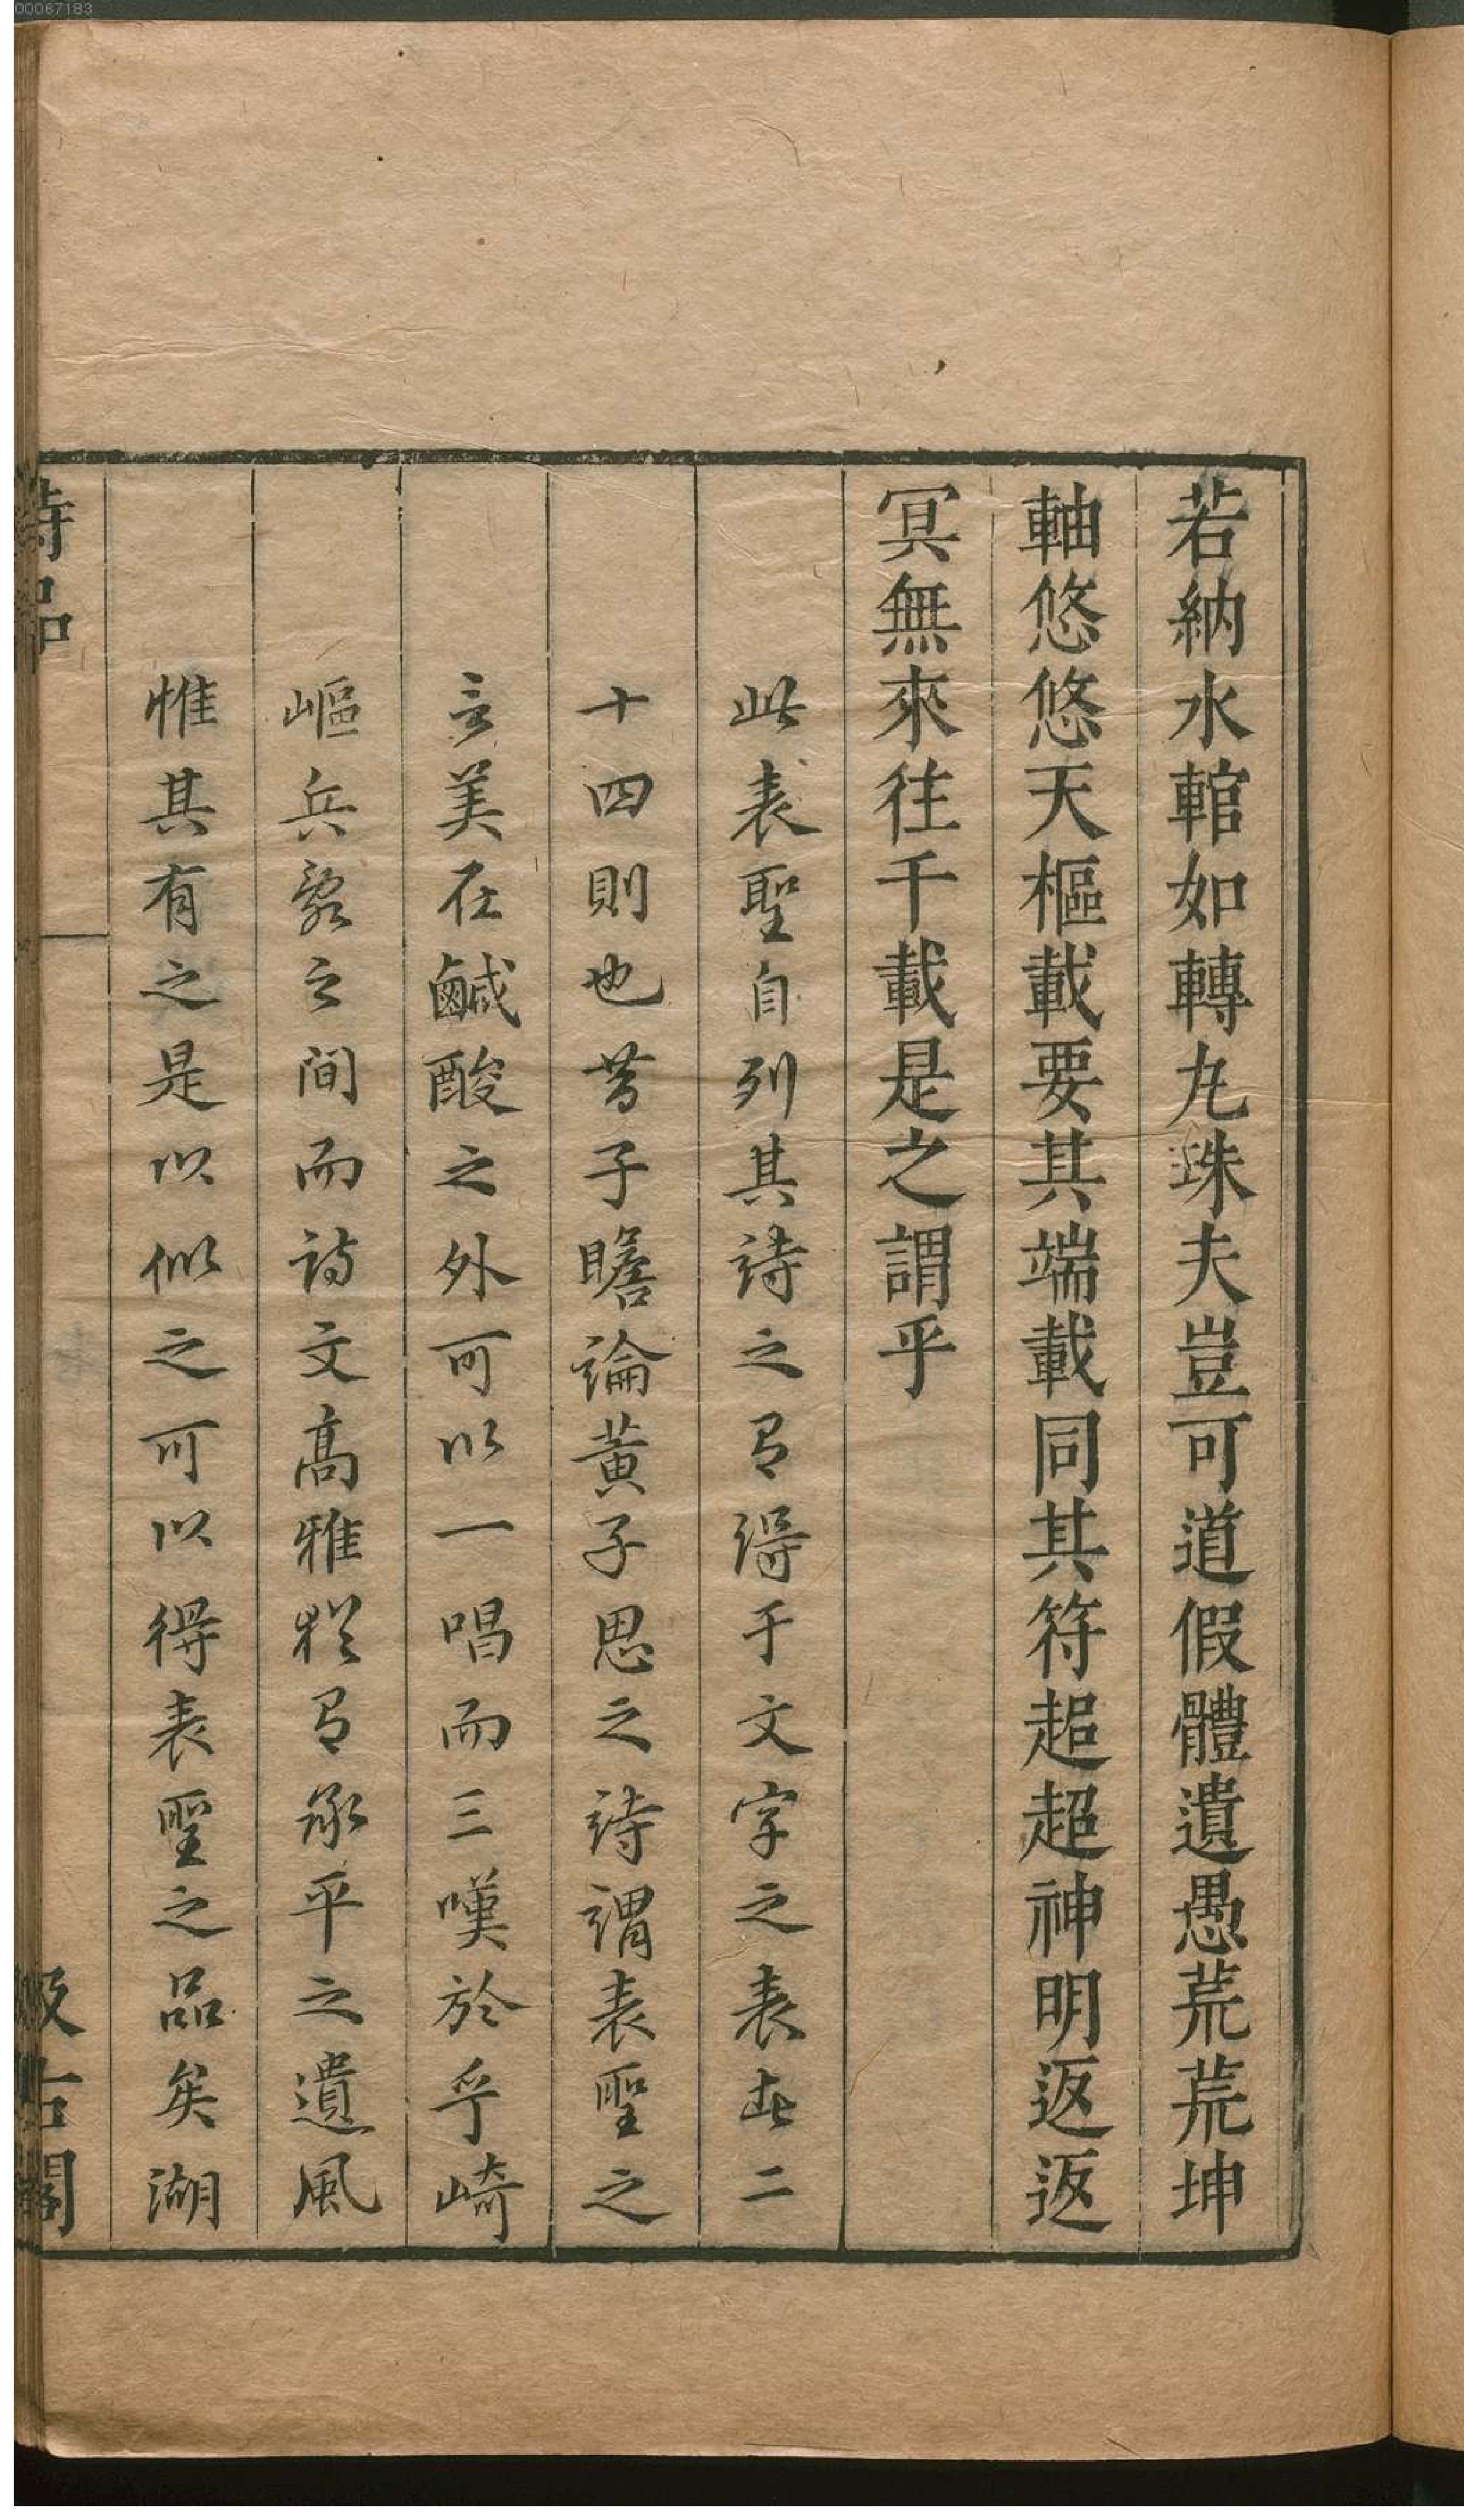 00067183
若納水輨如轉丸珠夫豈可道假體遺愚荒荒坤
軸悠悠天樞載要其端載同其符超超神明返返
冥無來往千載是之謂乎
此表聖自列其詩之有得于文字之表者二
十四則也昔子瞻論黃子思之詩謂表聖之
言美在鹹酸之外可以一唱而三嘆於乎崎
嶇兵亂之間而詩文高雅猶有承平之遺風
惟其有之是以似之可以得表聖之品矣湖
詩品
汲古閣